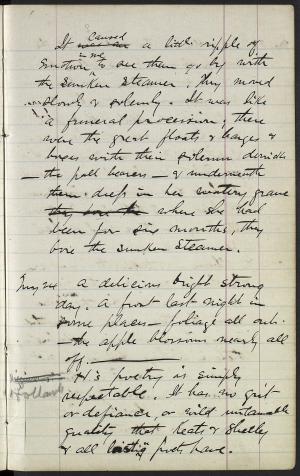 It caused a little ripple of
emotion in me to see them go by with
the sunken steamer. They moved
slowly & solemnly. It was like
a funeral procession; there
were the great floats & barges &
boxes with their solemn derricks
— the pall bearers — & underneath
them deep in her watery grave
where she had
been for six months, they
bore the sunken steamer.
May 24 A delicious bright strong
day. A frost last night in
some places — foliage all out.
— the apple blossoms nearly all
off.
H's poetry is simply
respectable. It has no grit
or defiance, or wild untamable
quality that Keats & Shelley
& all poets have.
Holland